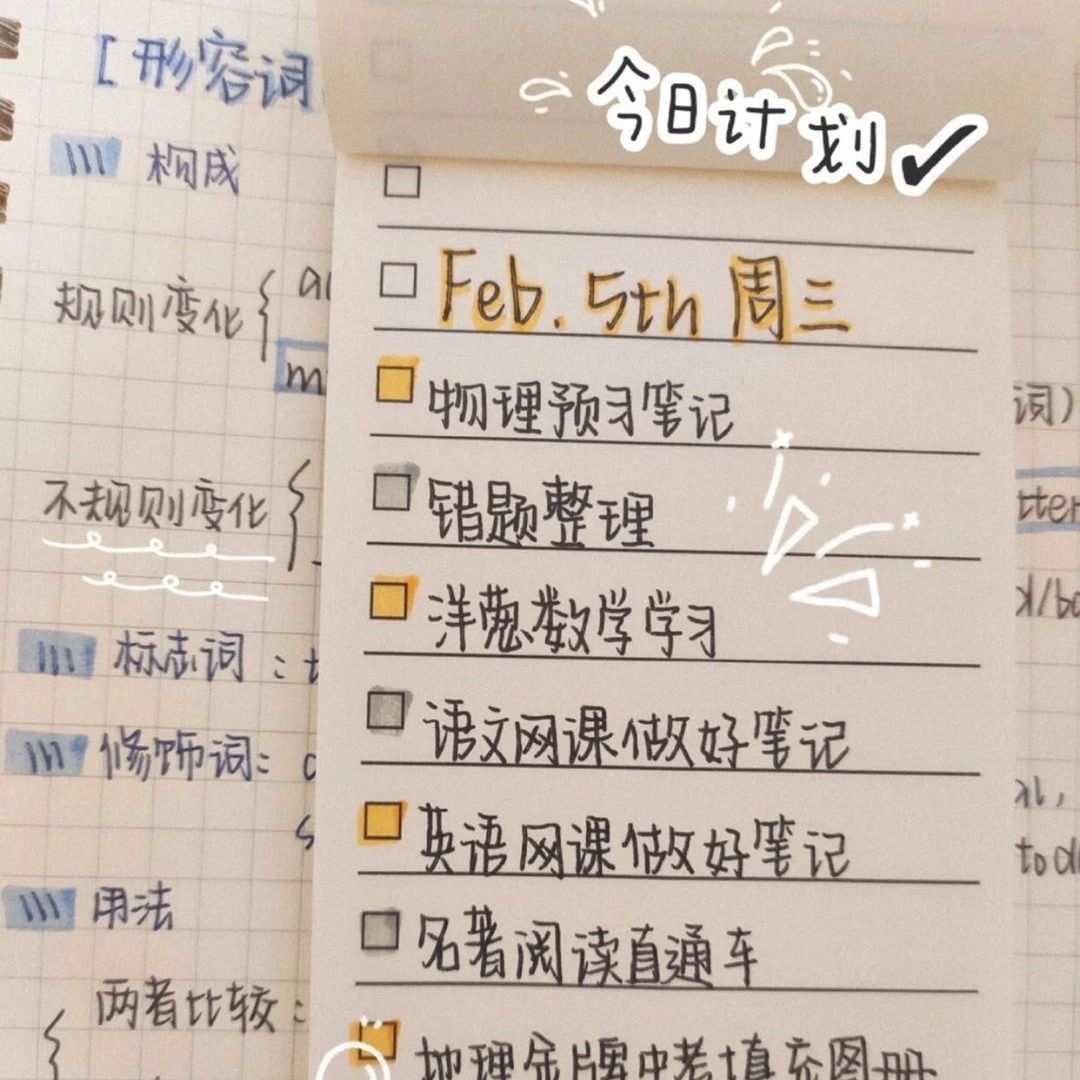 今日计划
Feb. 5th 周三
物理预习笔记
错题整理
洋葱数学学习
语文网课做好笔记
英语网课做好笔记
名著阅读直通车
地理金牌中考填充图册
[形容词
构成
规则变化
不规则变化
标志词:
修饰词:
用法
两者比较:
词)
tter
to